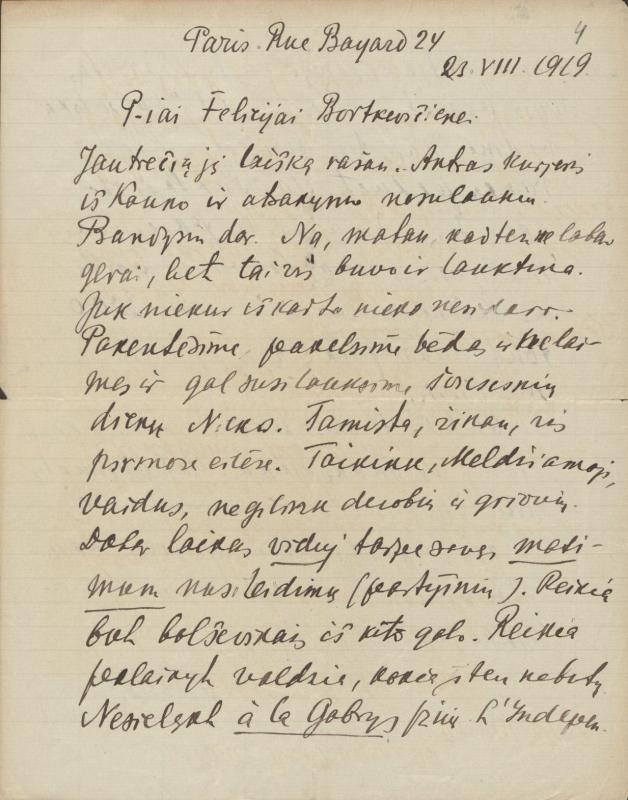 4
Paris. Rue Bayard 24
23. VIII. 1919.
P-iai Felicijai Bortkevičienei.
Jau trečią ją laišką rašau. Antras kurjeris
iš Kauno ir atsakymo nesulaukiu.
Bandysiu dar. Na, matau, kad ten ne labai
gerai, bet tai vis buvo ir lauktina.
Juk niekur iš karto nieko nesidaro.
Pakentėsime, pakelsime bėdas ir nelai-
mes ir gal susilauksime šviesesnių
dienų. Nieko. Tamista, žinau, vis
pirmose eilėse. Taikink, Meldžiamoji,
vaidus, negilink duobių ir griovių.
Dabar laikas viduj tarpe savęs maxi-
mum nusileidimų (partijinių). Reikia
but bolševikais iš kito galo. Reikia
palaikyt valdžia, kokia ji ten nebutų
Nesielgkt à la Gabrys žinių L'Indepen.